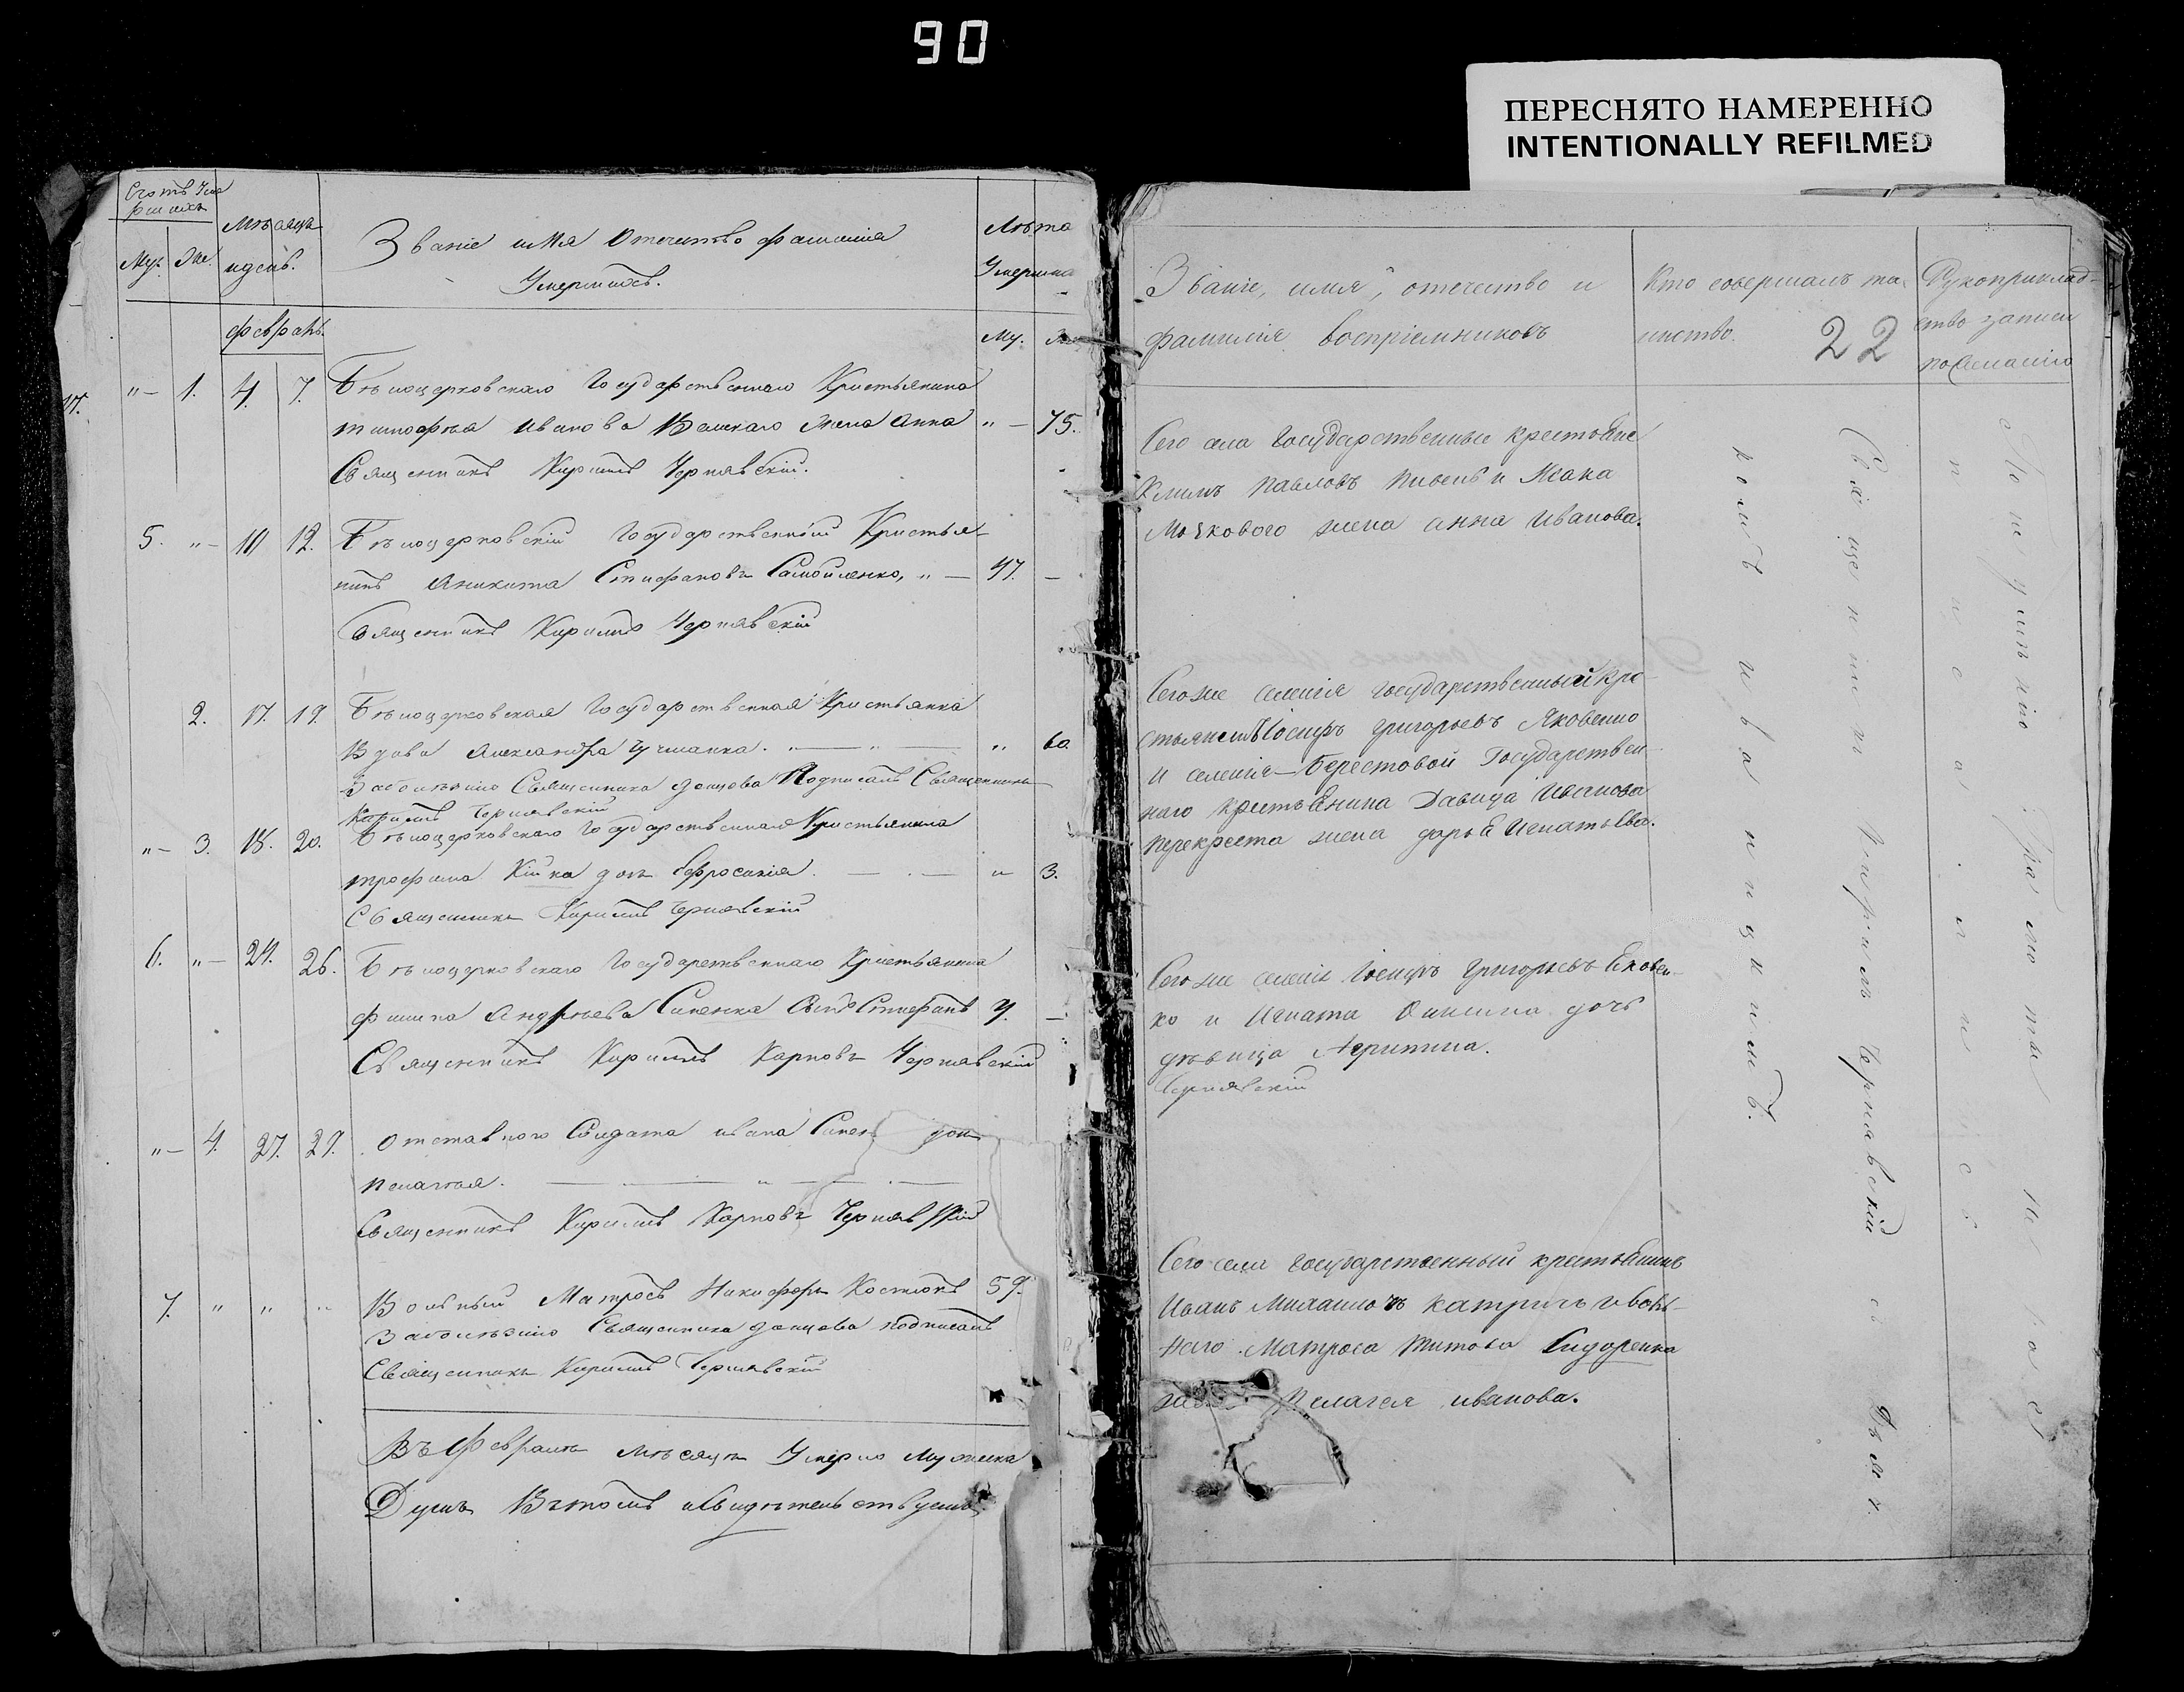 90
ПЕРЕСНЯТО НАМЕРЕННО
INTENTIONALLY REFILMED
Счотъ Уме
ршихъ
Му. Же.
Мѣсяцъ
и день.
Званіе имя Отечество фамилія
Умершихъ.
Лѣта
Умерша
Му.
февраль.
"— 1. 4. 7. Бѣлоцерковскаго Государственнаго Кристьянина
тимофѣа иванова жена анна " — 75.
Священникъ Кирилъ Чернявскій.
5. "— 10 12. Бѣлоцерковскій Государственный Кристья-
нинъ Аникита Стифановъ Самойленко, " — 47. —
Священникъ Кирилъ Чернявскій
2. 17. 19. Бѣлоцерковская Государственная Кристьянка
Вдова Александра " 60.
Заболѣзнію Священника донцова Подписалъ Священникъ
Кирилъ Чернявскій
"— 3. 18. 20. Бѣлоцерковскаго Государственнаго Кристьянина
трофима Кійка дочь Ефросинія. — " 3.
Священникъ Кирилъ Чернявскій
6. "— 24. 26. Бѣлоцерковскаго Государственнаго Кристьянина
филипа Андрѣева Сипенка Сынъ Стиефанъ —
Священникъ Кирилъ Карповъ Чернявскій
"— 4. 27. 29. Отставного Солдата ивана дочь
пелагѣя.
Священникъ Кирилъ Карповъ Чернявскій
7. " " " Вольный Матросъ Никифоръ Костюкъ 59.
Заболѣзнію Священника донцова подписалъ
Священникъ Кирилъ Чернявскій
Въ Февралѣ мѣсяцѣ Умерло Мужеска
Душъ Вътомъ и Свидѣтельствуемъ
Званіе, имя, отечество и
фамилія воспріемниковъ
Кто совершалъ та-
инство.
22
Рукоприклад-
ство записи
по желанію
Сего села Государственные крестьяне
Климъ Павловъ Пивень и Исака
жена анна Иванова.
Сегоже селенія Государственный кре-
стьянинъ Іосифъ Григорьевъ Яковенко
и селенія Берестовой Государствен-
наго крестьянина Давида Иванова
Перекреста жена дарья Игнатьева.
Сегоже селенія Іосифъ Григорьевъ Яковен-
ко и Игната дочь
дѣвица Агрипина.
Чернявскій
Сего села Государственный крестьянинъ
Иванъ Михаиловъ Катричъ и воль-
наго Матроса Титова Сидоренка
Пелагея иванова.
Священникъ Кирилъ Чернявскій съ Дьяч.